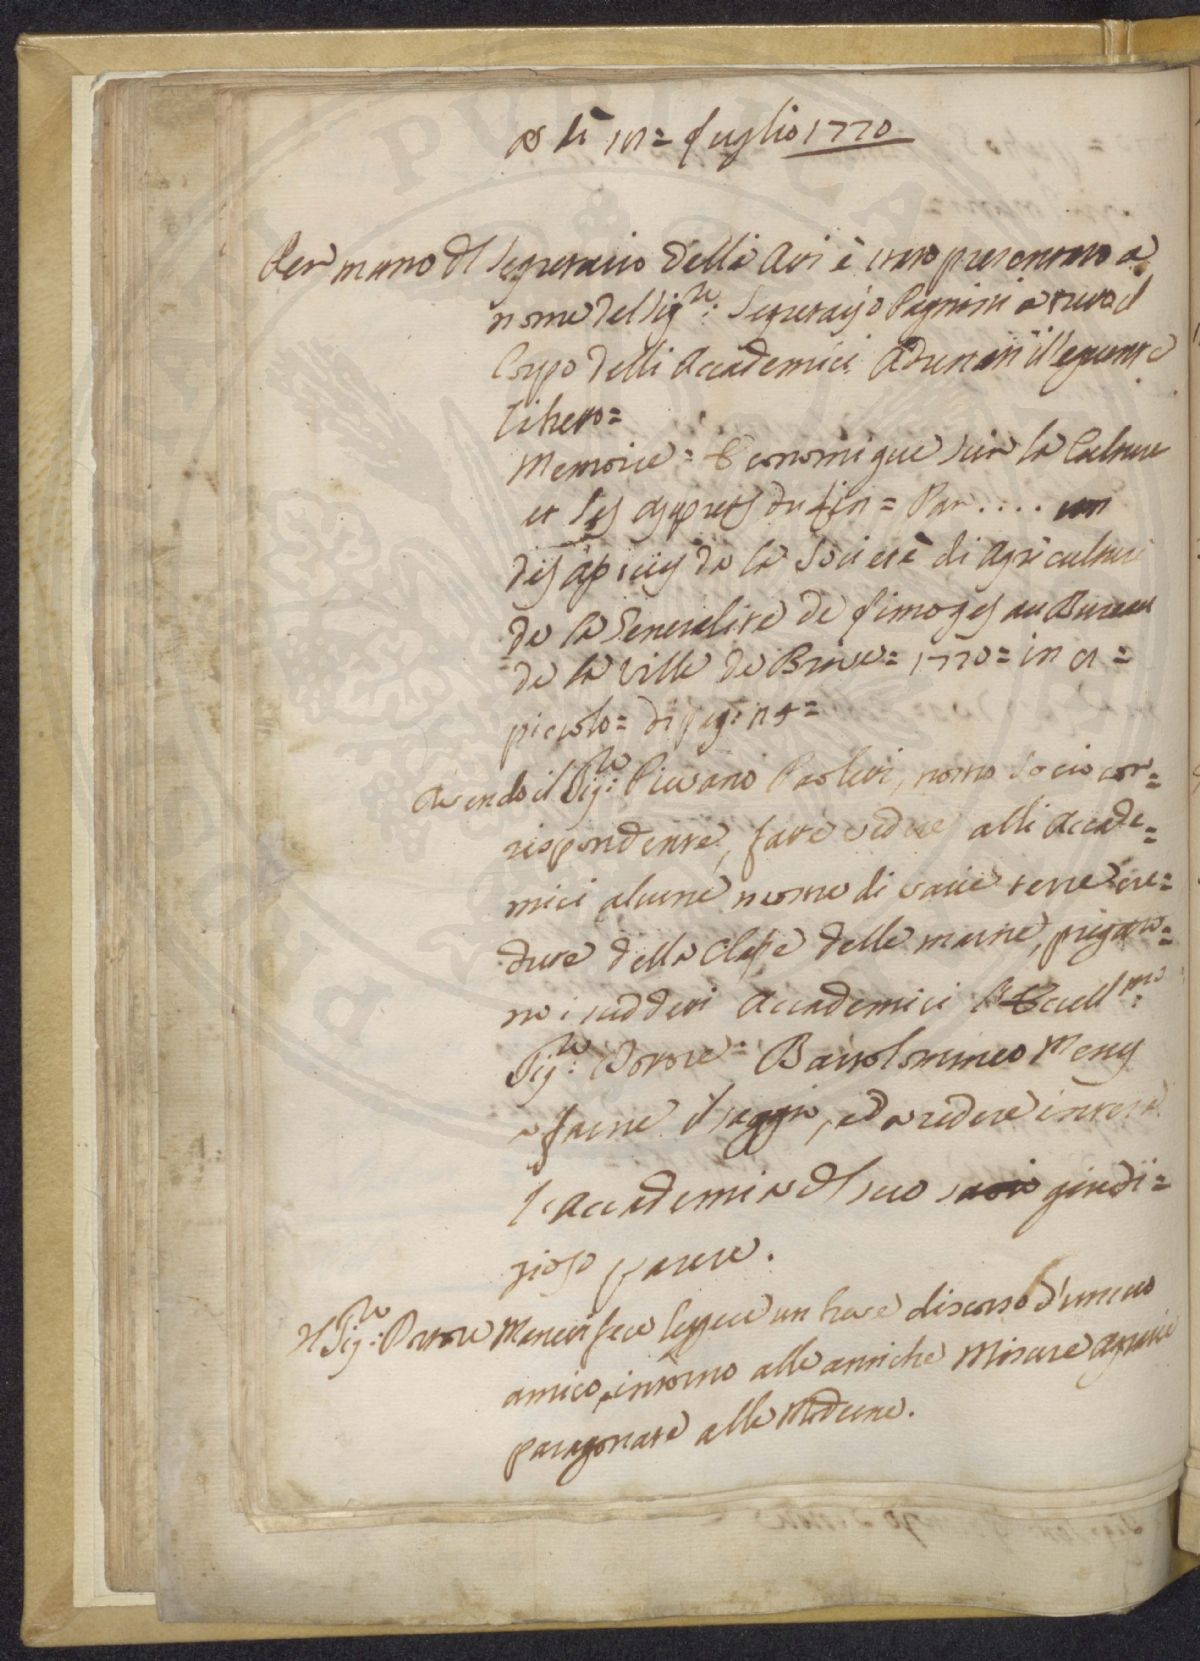 a lì = Luglio 1770
Per mano del Segretario delli Atti è stato presentato a
nome del Sig.re: Segretario Pagnini a tutto il
Corpo delli Accademici Adunati il seguente
Libretto=
Memoire= Economique sur la Culture
et les du Lin= Par .... un
des de la Societè di Agriculture
de la Generalite de Limoges au Bureau
de la Ville de Brive= 1770= in
piccolo= di pag:
Avendo il Sig.re: Pievano Paoletti, nostro Socio cor=
rispondente, fatte vedere alli Accade=
mici alcune mostre di varie terre cre=
dute della Classe delle marne, pregaro=
no i suddetti Accademici l'Eccell.mo
Sig.re: Dottore= Bartolommeo Mesny
a farne il saggio, ed a rendere intesa
l'Accademia del suo giudi=
zioso parere.
Il Sig.re: Dottore Manetti fece leggere un breve discorso d'un suo
amico, intorno alle antiche Misure Agrarie
paragonate alle Moderne.